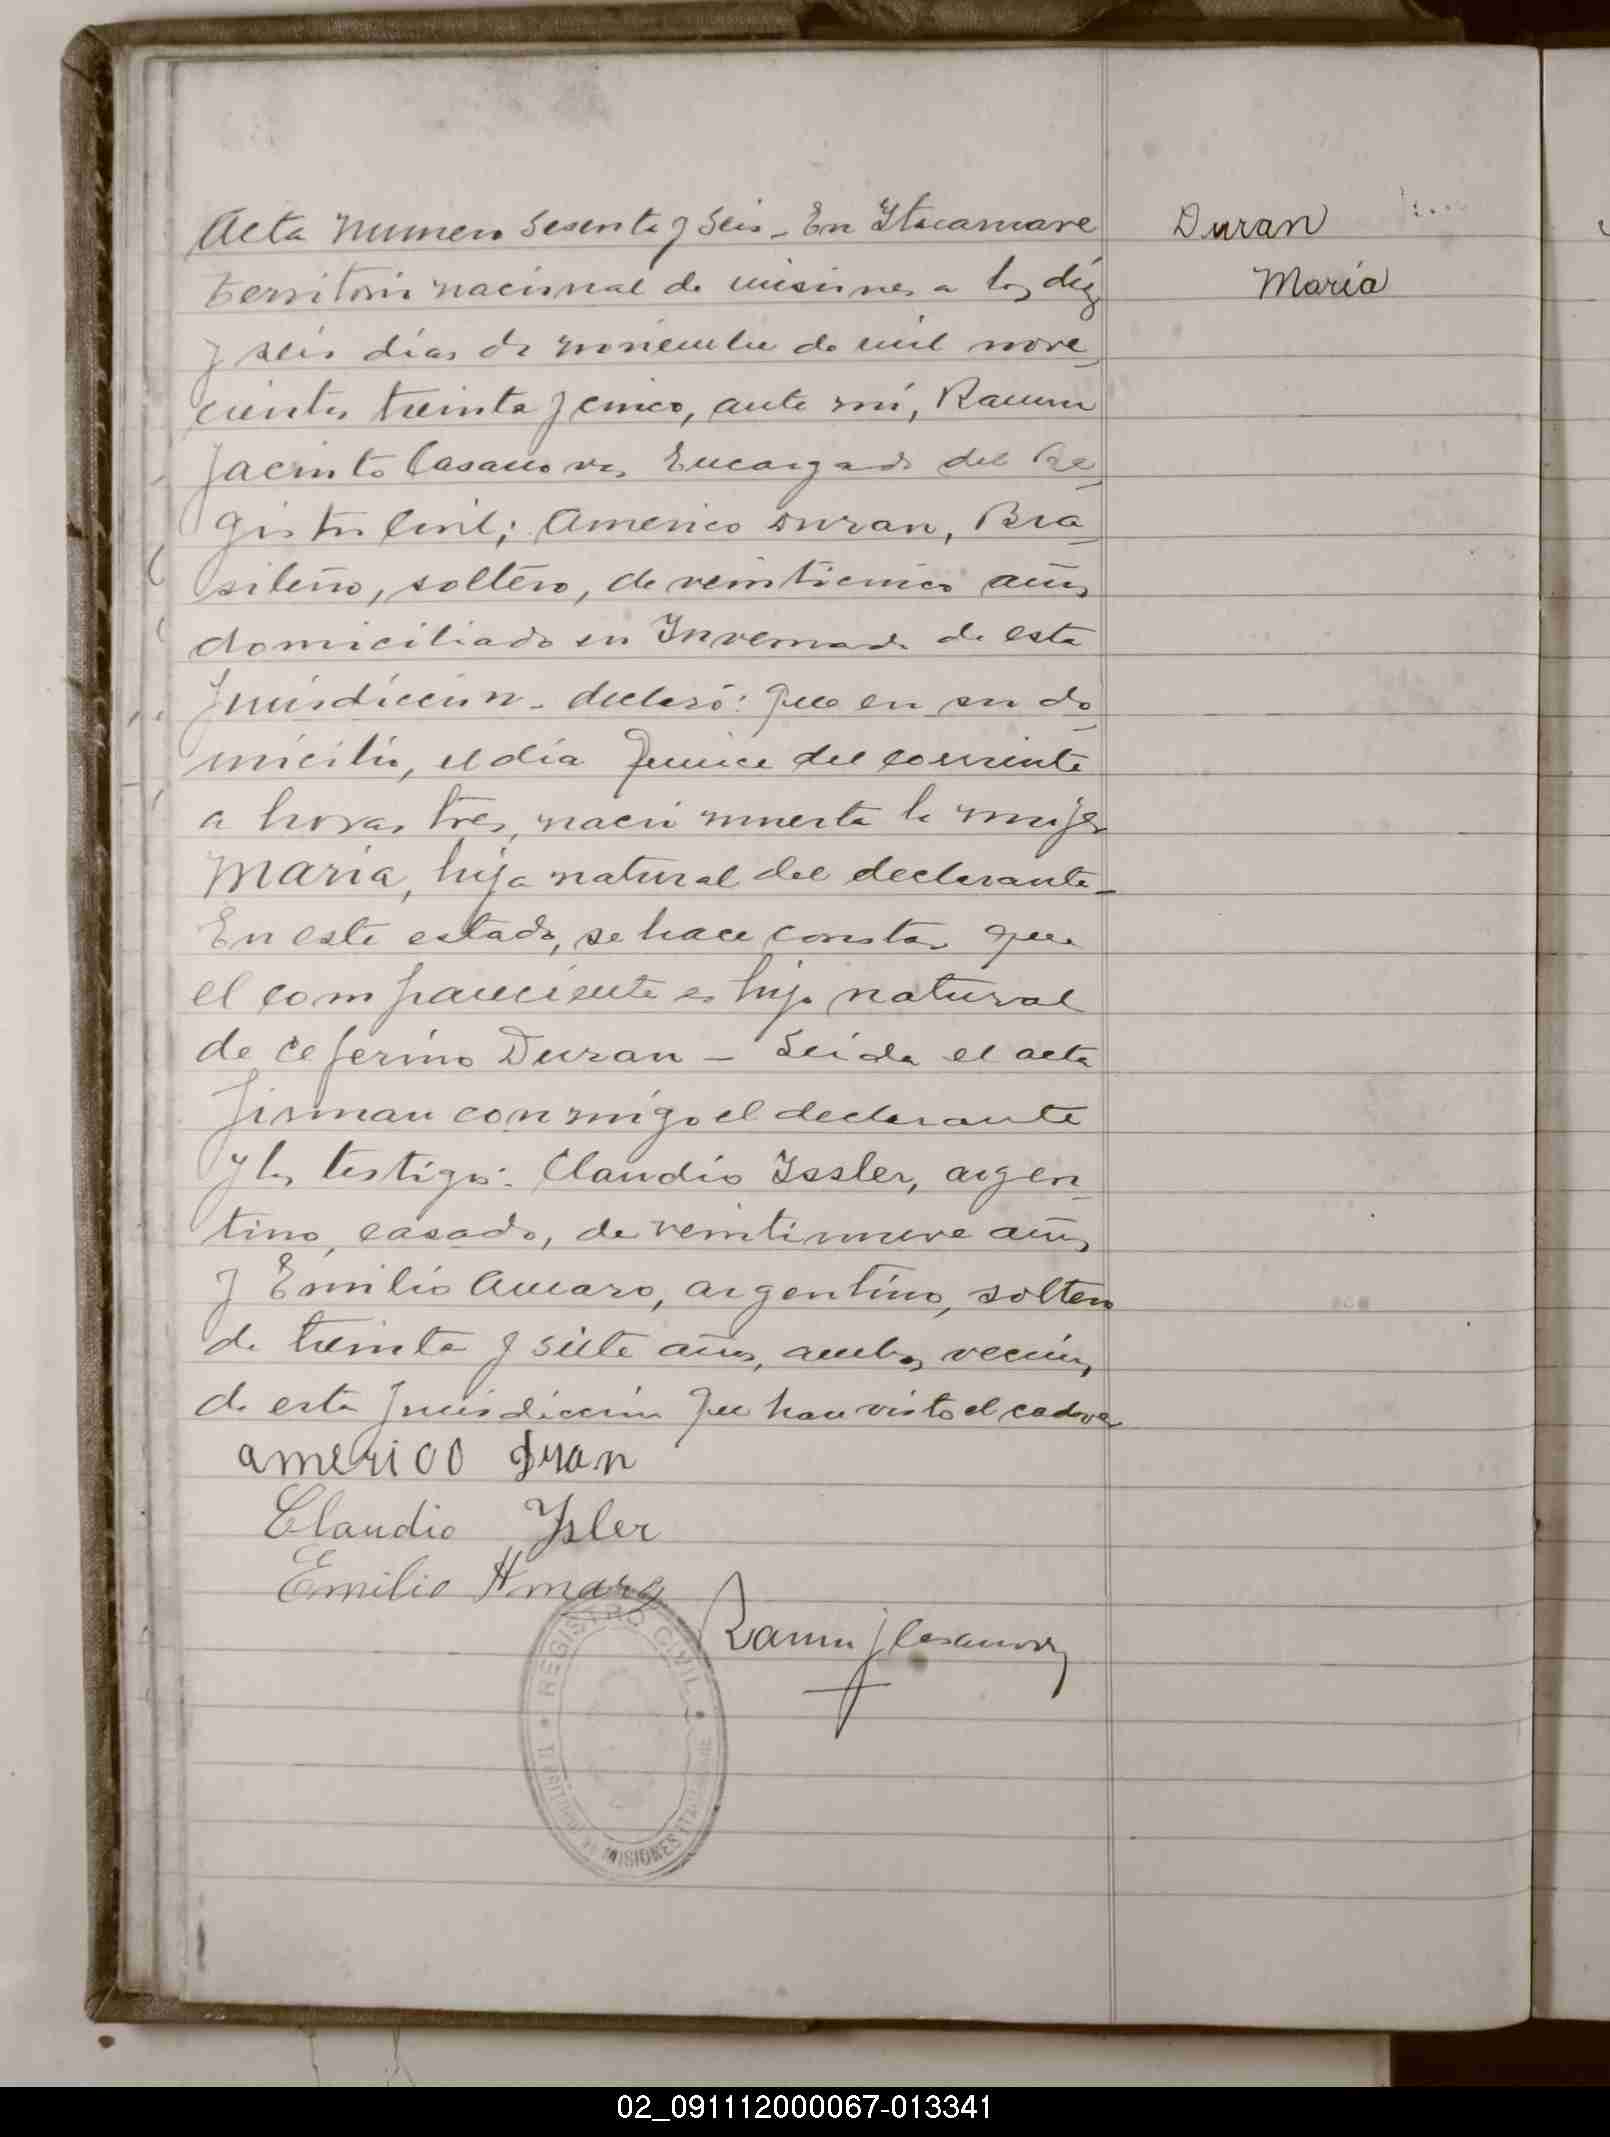 Acta Numero Sesenta y Seis - En Ytacaruare
territorio nacional de misiones a los diez
y seis dias de noviembre de mil nove_
cientos treinta y cinco, ante mí, Ramon
Jacinto Casanova, Encargado del Re_
gistro Civil; Americo Duran, Bra_
sileño, soltero, de veinticinco años
domiciliado en Invernada de esta
Jurisdiccion - declaró: que en su do_
micilio, el día quince del corriente
a horas tres, nació muerta la mujer
Maria, hija natural del declarante_
En este estado, se hace constar que
el compareciente es hijo natural
de Ceferino Duran - Leida el acta
firman conmigo el declarante
y los testigos: Claudio Yssler, argen_
tino, casado, de veintinueve años
y Emilio Amaro, argentino, soltero
de treinta y siete años, ambos vecinos
de esta jurisdiccion que han visto el cadaver
americo Duran
Claudio Ysler
Emilio Amaro
Ramon J Casanova
REGISTRO CIVIL
TERRITORIO DE MISIONES
Duran
Maria
02_091112000067-013341